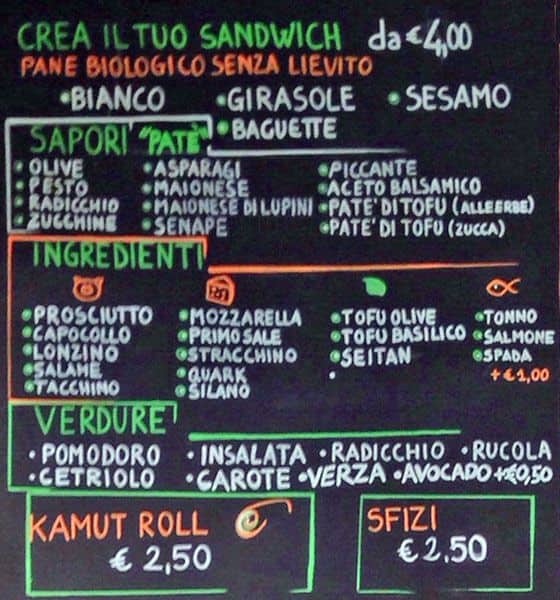 CREA IL TUO SANDWICH da €4,00
PANE BIOLOGICO SENZA LIEVITO
•BIANCO •GIRASOLE •SESAMO
•BAGUETTE
SAPORI "PATÈ"
•OLIVE •ASPARAGI •PICCANTE
•PESTO •MAIONESE •ACETO BALSAMICO
•RADICCHIO •MAIONESE DI LUPINI •PATE' DI TOFU (ALLE ERBE)
•ZUCCHINE •SENAPE •PATE' DI TOFU (ZUCCA)
INGREDIENTI
•PROSCIUTTO •MOZZARELLA •TOFU OLIVE •TONNO
•CAPOCOLLO •PRIMO SALE •TOFU BASILICO •SALMONE
•LONZINO •STRACCHINO •SEITAN •SPADA
•SALAME •QUARK • +€1,00
•TACCHINO •SILANO
VERDURE
•POMODORO •INSALATA •RADICCHIO •RUCOLA
•CETRIOLO •CAROTE •VERZA •AVOCADO +€0,50
KAMUT ROLL
€ 2,50
SFIZI
€ 2.50